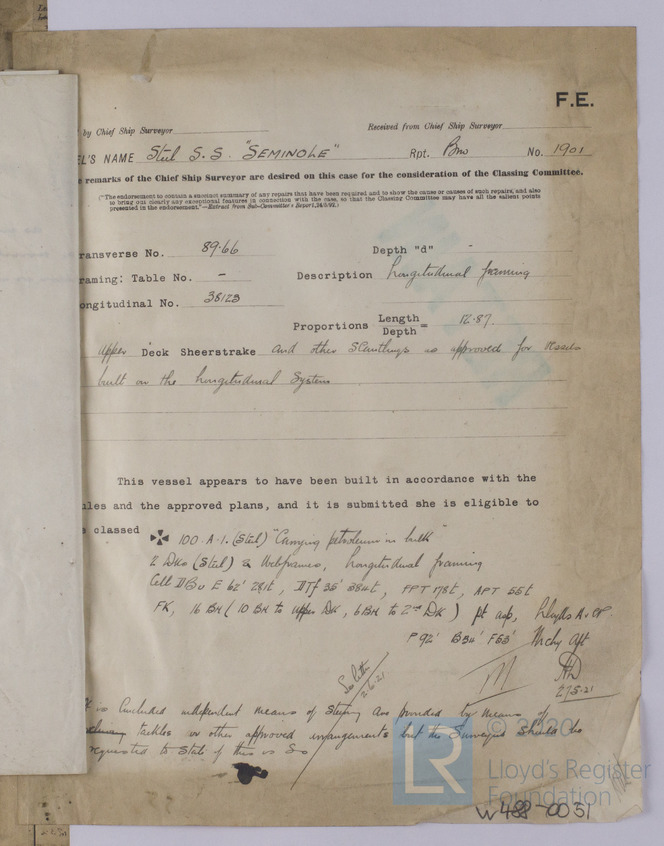 F.E.
by Chief Ship Surveyor
Received from Chief Ship Surveyor
EL'S NAME Steel S.S. "SEMINOLE" Rpt. Bmo No. 1901
e remarks of the Chief Ship Surveyor are desired on this case for the consideration of the Classing Committee.
("The endorsement to contain a succinct summary of any repairs that have been required and to show the cause or causes of such repairs, and also
to bring out clearly any exceptional features in connection with the case, so that the Classing Committee may have all the salient points
presented in the endorsement."—Extract from Sub-Committee's Report,
ransverse No. 89.66 Depth "d" -
raming: Table No. - Description Longitudinal framing
ongitudinal No. 38123
Proportions Length/Depth = 12.87.
Upper Deck Sheerstrake and other scantlings as approved for vessels
built on the Longitudinal System
This vessel appears to have been built in accordance with the
ules and the approved plans, and it is submitted she is eligible to
classed ✠ 100.A.1.(Steel) "Carrying petroleum in bulk"
2 Dks (Steel) & Webframes, Longitudinal framing
Cell DBu E 62' 281t, DTf 35' 384t, FPT 178t, APT 55t
FK, 16 BH (10 BH to upper Dk, 6 BH to 2nd Dk) pt asp, Lloyds A & CP.
P 92' B34' F53' Mchy Aft
27.5.21
See letter
2/6/21
It is concluded independent means of steering are provided by means of
tackles or other approved arrangements but the Surveyors should be
requested to state if this is so
© 2020
LR
Lloyd's Register
Foundation
W488-0031